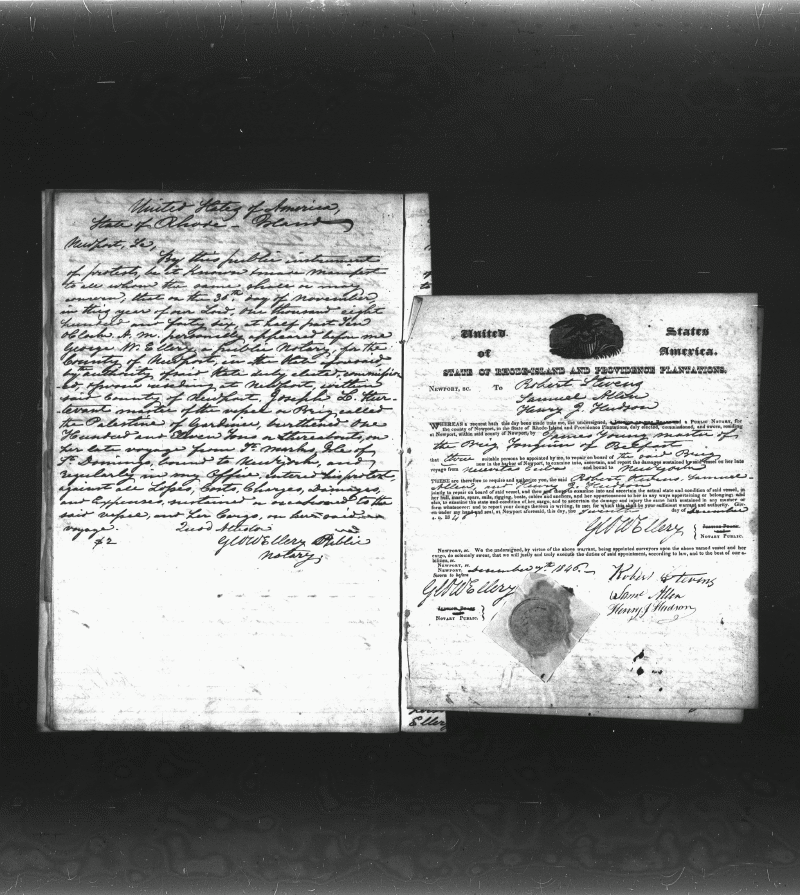 United States of America,
State of Rhode-Island
Newport, Sc,
By this public instrument
of protest, be it known & made manifest
to all whom the same shall or may
concern, that on the 30th day of November
in this year of our Lord one thousand eight
hundred and forty six, at half past Ten
o'Clock A.M. personally appeared before me
George W. Ellery a public Notary, for the
County of Newport, in the State aforesaid
by authority of said State duly elected, commission
ed, & sworn residing at Newport, within
said County of Newport, Joseph L.
master of the vessel or Brig called
the Palestine of Gardiner, burthened One
Hundred and Eleven Tons or thereabouts, on
her late voyage from St. Marks, Isle of
St. Domingo, bound to New York, and
regularly in my Office, enters his protest
against all Losses, Costs, Charges, Damages,
and Expenses, sustained or occasioned to the
said vessel, and her Cargo, on her said
voyage. Quod Attestor
$2 Geo W Ellery Public
Notary,
United States
of America.
STATE OF RHODE-ISLAND AND PROVIDENCE PLANTATIONS.
NEWPORT, SC. To Robert Stevens
Samuel Allen
Henry J. Hudson
WHEREAS a request hath this day been made unto me, the undersigned, a PUBLIC NOTARY, for
the county of Newport, in the State of Rhode Island and Providence Plantations, duly elected, commissioned, and sworn, residing
at Newport, within said county of Newport, by James Young master of
the Brig of Belfast
that three suitable persons be appointed by me, to repair on board of the said Brig
now in the harbor of Newport, to examine into, ascertain, and report the damages sustained by said vessel on her late
voyage from and bound to New York
THESE are therefore to require and authorize you, the said Robert Stevens, Samuel
Allen, and Henry J. Hudson
jointly to repair on board of said vessel, and then and there to examine into and ascertain the actual state and condition of said vessel, of
her hull, masts, spars, sails, rigging, boats, cables and anchors, and her appurtenances to her in any ways appertaining or belonging; and
also, to examine the state and condition of her cargo, and to ascertain the damage and injury the same hath sustained in any manner or
form whatsoever: and to report your doings thereon in writing, to me; for which this shall be your sufficient warrant and authority. Giv-
en under my hand and seal, at Newport aforesaid, this day, the day of December
1846
Geo W Ellery
NOTARY PUBLIC.
NEWPORT, SC. We the undersigned, by virtue of the above warrant, being appointed surveyors upon the above named vessel and her
cargo, do solemnly swear, that we will justly and truly execute the duties of said appointment, according to law, and to the best of our a-
bilities.
NEWPORT, SC.
NEWPORT, December 7th 1846.
Sworn to before
Geo W Ellery
NOTARY PUBLIC.
Robert Stevens
Saml Allen
Henry J Hudson
Ellery